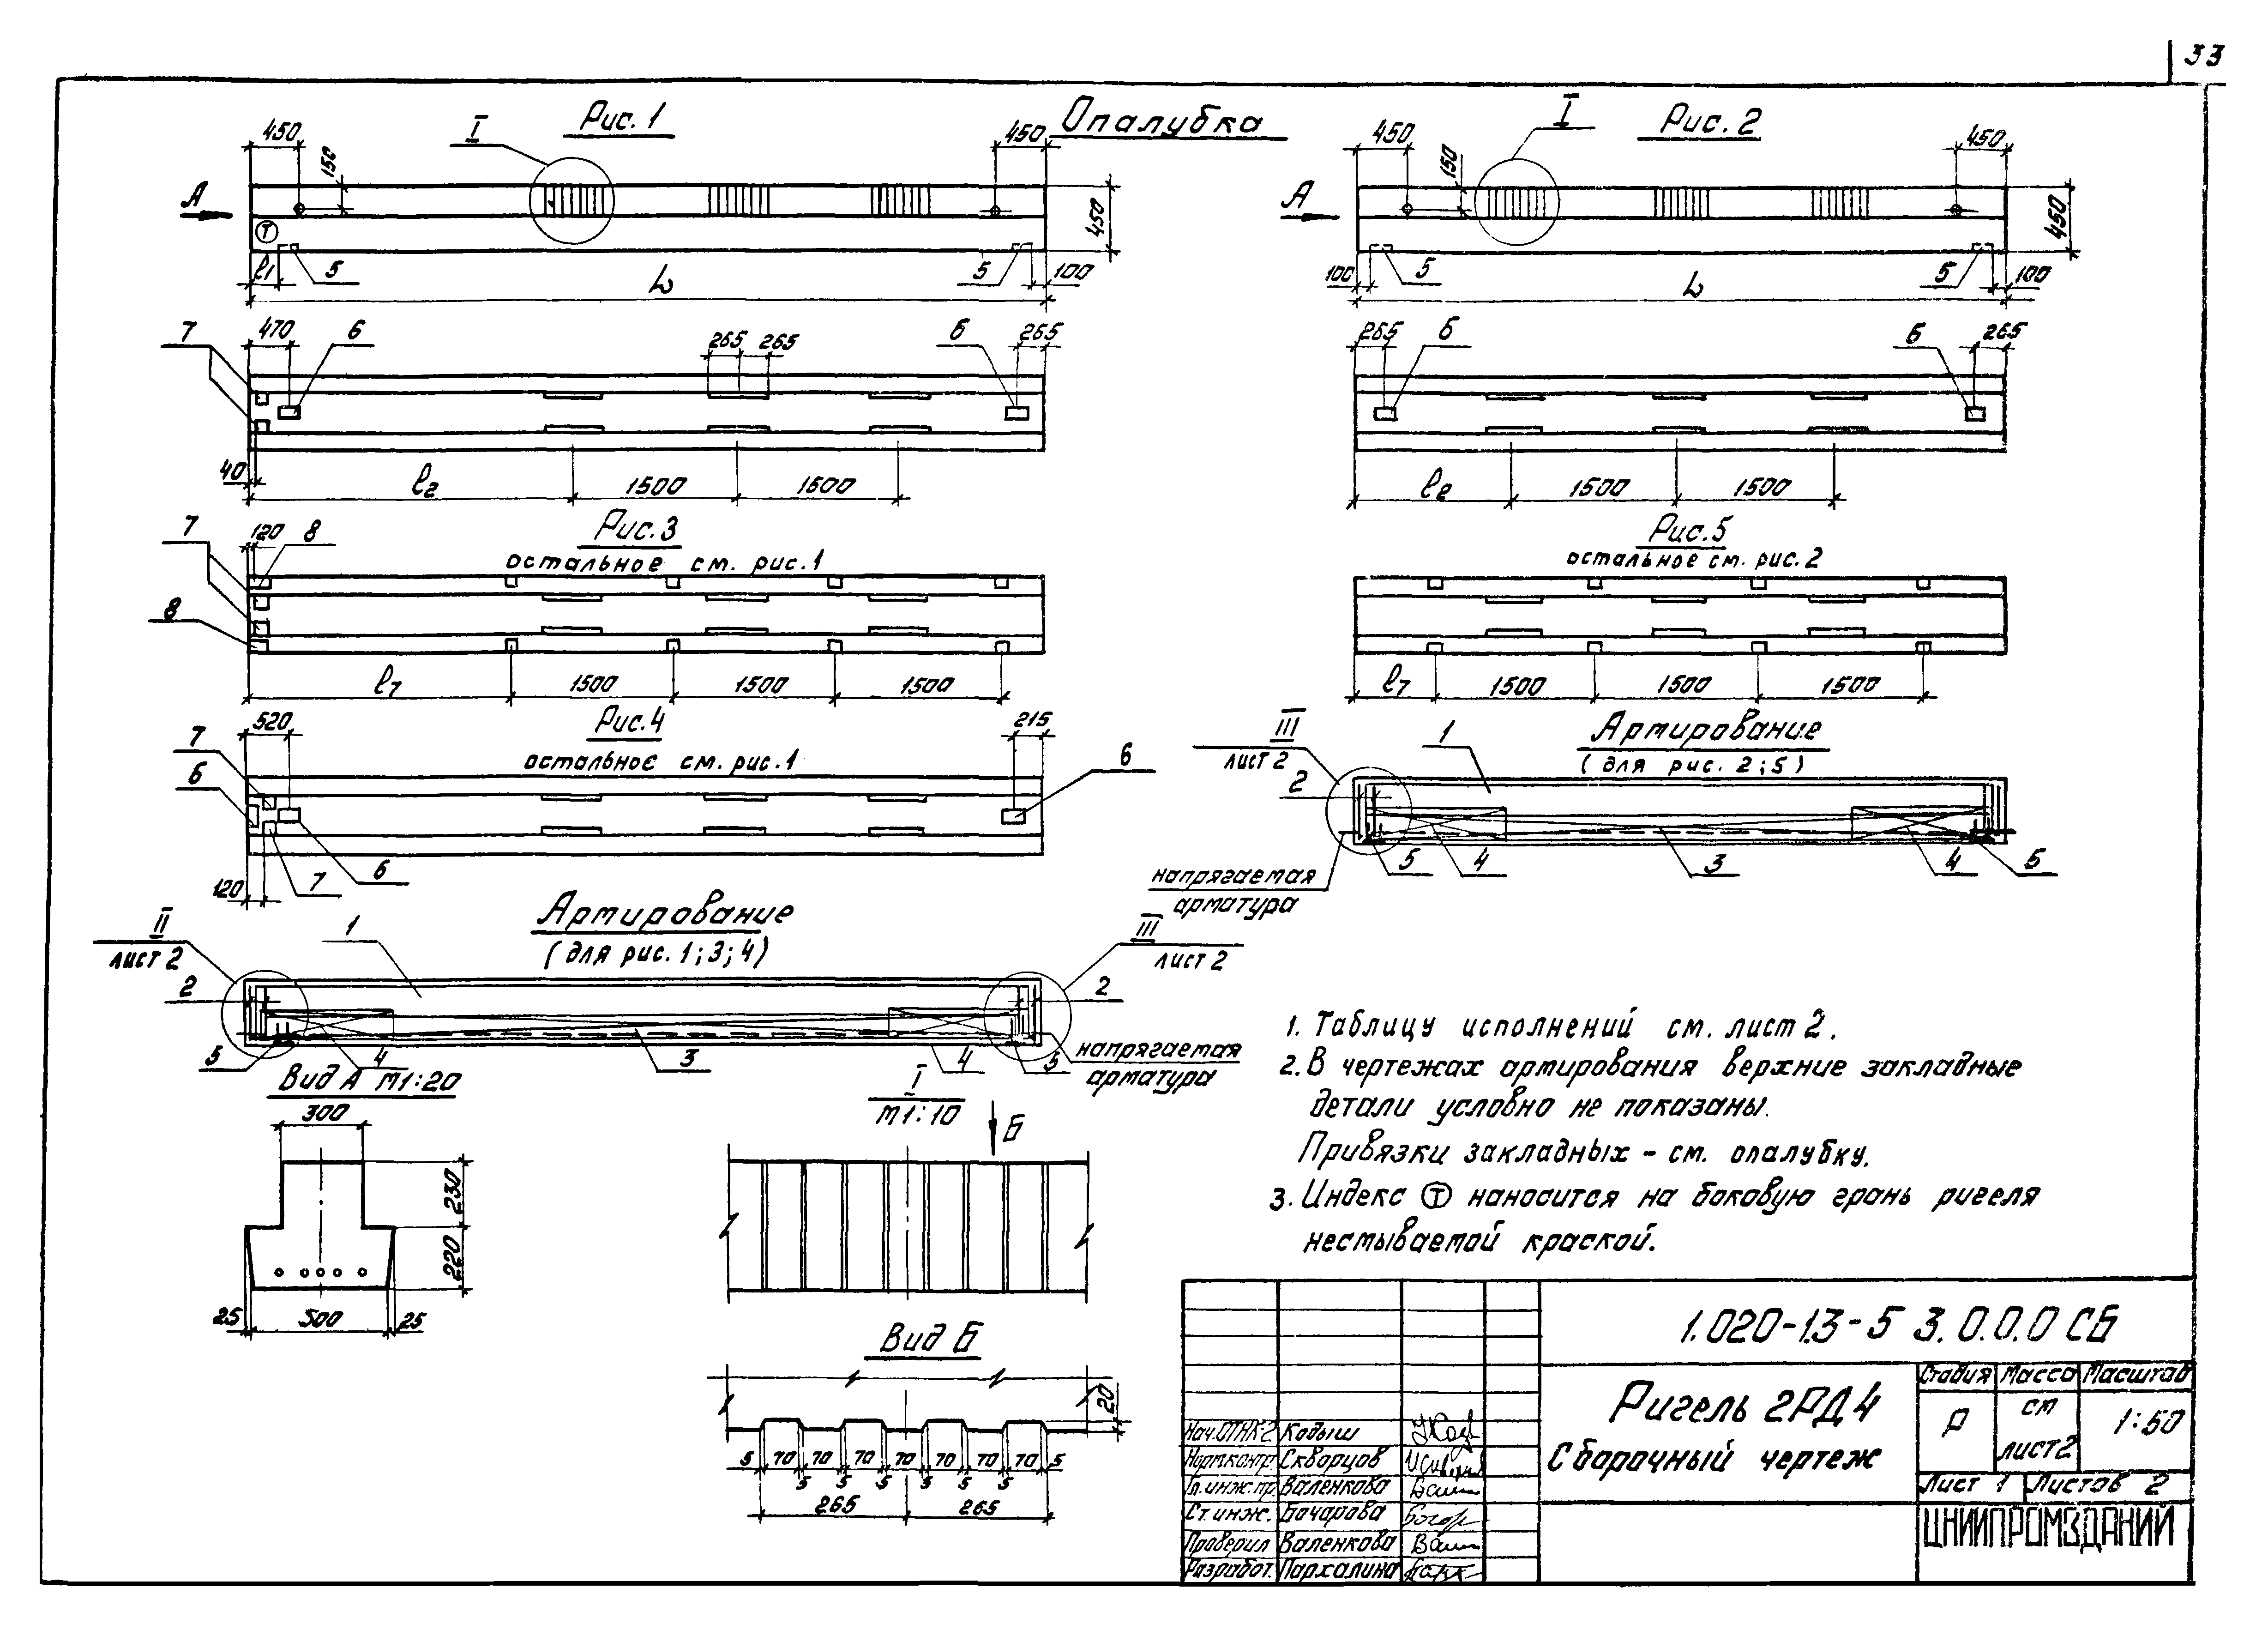 33
Опалубка
Рис. 1
I
450
150
450
450
А
Т
l1
5
5
100
L
7
470
6
265
265
6
265
40
l2
1500
1500
Рис. 2
I
450
150
450
450
А
100
5
5
100
L
265
6
6
265
l2
1500
1500
Рис. 3
остальное см. рис. 1
7
120
8
8
l7
1500
1500
1500
Рис. 5
остальное см. рис. 2
l7
1500
1500
1500
Рис. 4
остальное см. рис. 1
520
215
7
6
6
120
7
6
Армирование
(для рис. 2; 5)
III
лист 2
1
2
5
4
3
4
5
напрягаемая
арматура
Армирование
(для рис. 1; 3; 4)
II
лист 2
1
III
лист 2
2
2
5
4
3
4
5
напрягаемая
арматура
Вид А М1:20
300
230
220
25
500
25
I
М1:10
Б
Вид Б
20
5 70 70 70 70 70 70 70 5
5 5 5 5 5 5
265
265
1. Таблицу исполнений см. лист 2.
2. В чертежах армирования верхние закладные
детали условно не показаны.
Привязки закладных - см. опалубку.
3. Индекс Т наносится на боковую грань ригеля
несмываемой краской.
1.020-1.3-5 3.0.0.0 СБ
Ригель 2РД4
Сборочный чертеж
Стадия Масса Масштаб
Р см лист 2 1:50
Лист 1 Листов 2
ЦНИИПРОМЗДАНИЙ
Нач.ОТНК-2 Кодыш
Норм.контр. Скворцов
Гл.инж.пр. Валенкова
Ст.инж. Бочарова
Проверил Валенкова
Разработ. Пархалина